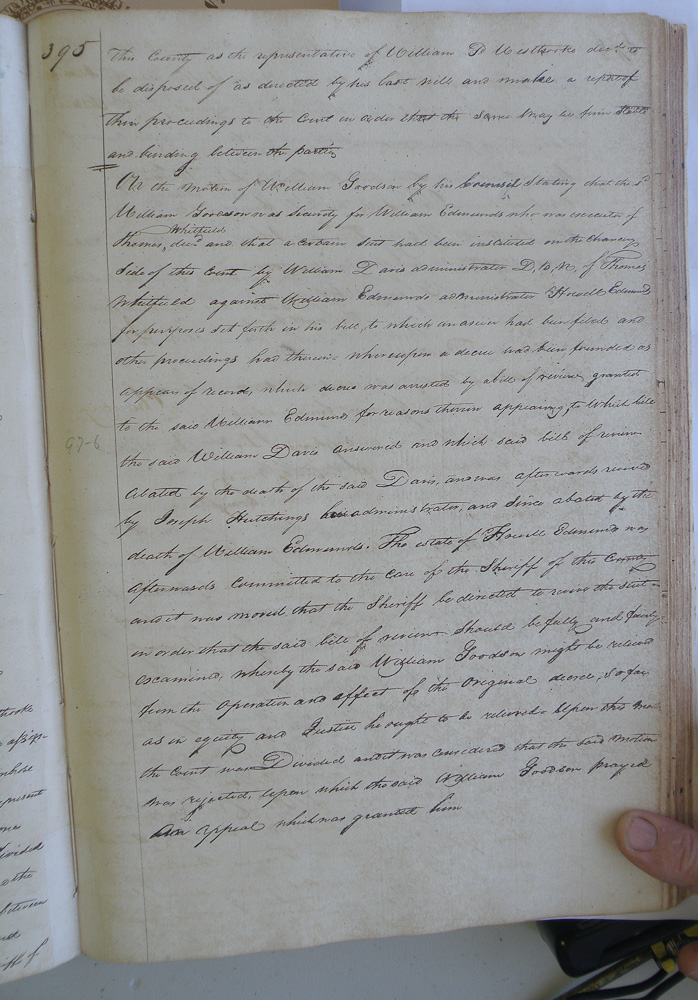 395
This County as the representative of William D Westbrooke decd. to
be disposed of as directed by his last will and make a report of
their proceedings to the Court in order that the same may be firm stable
and binding between the parties
On the motion of William Goodson by his Counsil Stating that the sd.
William Goodson was Security for William Edmunds who was executor of
Whitfield
Thomas, decd. and that a certain Suit had been instituted on the Chancery
Side of this Court by William Davis administrator D. B. N. of Thomas
Whitfield against William Edmunds administrator Howell Edmunds
for purposes set forth in his bill, to which an answer had been filed and
other proceedings had therein whereupon a decree had been founded as
appears of record, which decree was arrested by a bill of review granted
to the said William Edmunds for reasons therein appearing, to which bill
the said William Davis answered and which said bill of review
abated by the death of the said Davis, and was afterwards revived
by Joseph Hutchings his administrator, and Since abated by the
death of William Edmunds. The estate of Howell Edmunds was
afterwards Committed to the Care of the Sheriff of this County
and it was moved that the Sheriff be directed to revive the suit
in order that the said bill of review should be fully and fairly
examined, whereby the said William Goodson might be relieved
from the operation and effect of the Original decree, So far
as in equity and Justice he ought to be relieved. Upon this
the Court was Divided and it was considered that the said motion
was rejected, Upon which the said William Goodson prayed
an appeal which was granted him
97-6